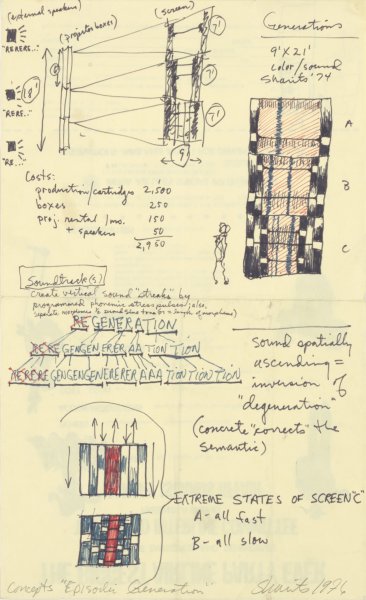 (external speakers)
"RERERE.."
"RERE..."
"RE..."
18'
(projector boxes)
8'
(screen)
7'
7'
7'
9'
Generations
9'X21'
color/sound
Sharits '74
A
B
C
Costs:
production/cartridges 2,500
boxes 250
proj. rental/mo. 150
+ speakers 50
2,950
Soundtrack(s)
Create vertical sound "streaks" by
programmed phonemic stress pulses; also,
REGENERATION
RERE GENGEN ERER AA TION TION
RERERE GENGENGEN ERERER AAA TION TION TION
sound spatially
ascending =
inversion of
"degeneration"
(concrete "corrects" the
semantic)
EXTREME STATES OF SCREEN "C"
A - all fast
B - all slow
concepts "Episodic Generation"
Sharits 1976